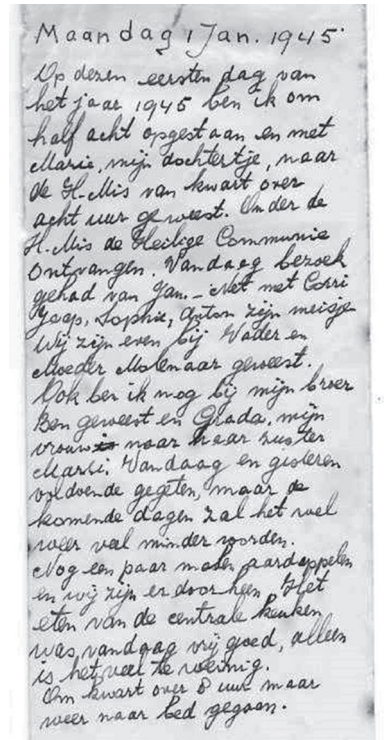 Maandag 1 Jan. 1945.
Op dezen eersten dag van
het jaar 1945 ben ik om
half acht opgestaan en met
Marie, mijn dochtertje, naar
de H. Mis van kwart over
acht uur geweest. Onder de
H. Mis de Heilige Communie
ontvangen. Vandaag bezoek
gehad van Jan. - Net met Corri
Jaap, Sophie, Anton zijn meisje
Wij zijn even bij Vader en
Moeder Molenaar geweest.
Ook ben ik nog bij mijn broer
Ben geweest en Grada, mijn
vrouw naar haar zuster
Marie. Vandaag en gisteren
voldoende gegeten, maar de
komende dagen zal het wel
weer veel minder worden.
Nog een paar malen aardappelen
en wij zijn er door heen. Het
eten van de centrale keuken
was, vandaag vrij goed, alleen
is het veel te weinig.
Om kwart over 8 uur maar
weer naar bed gegaan.